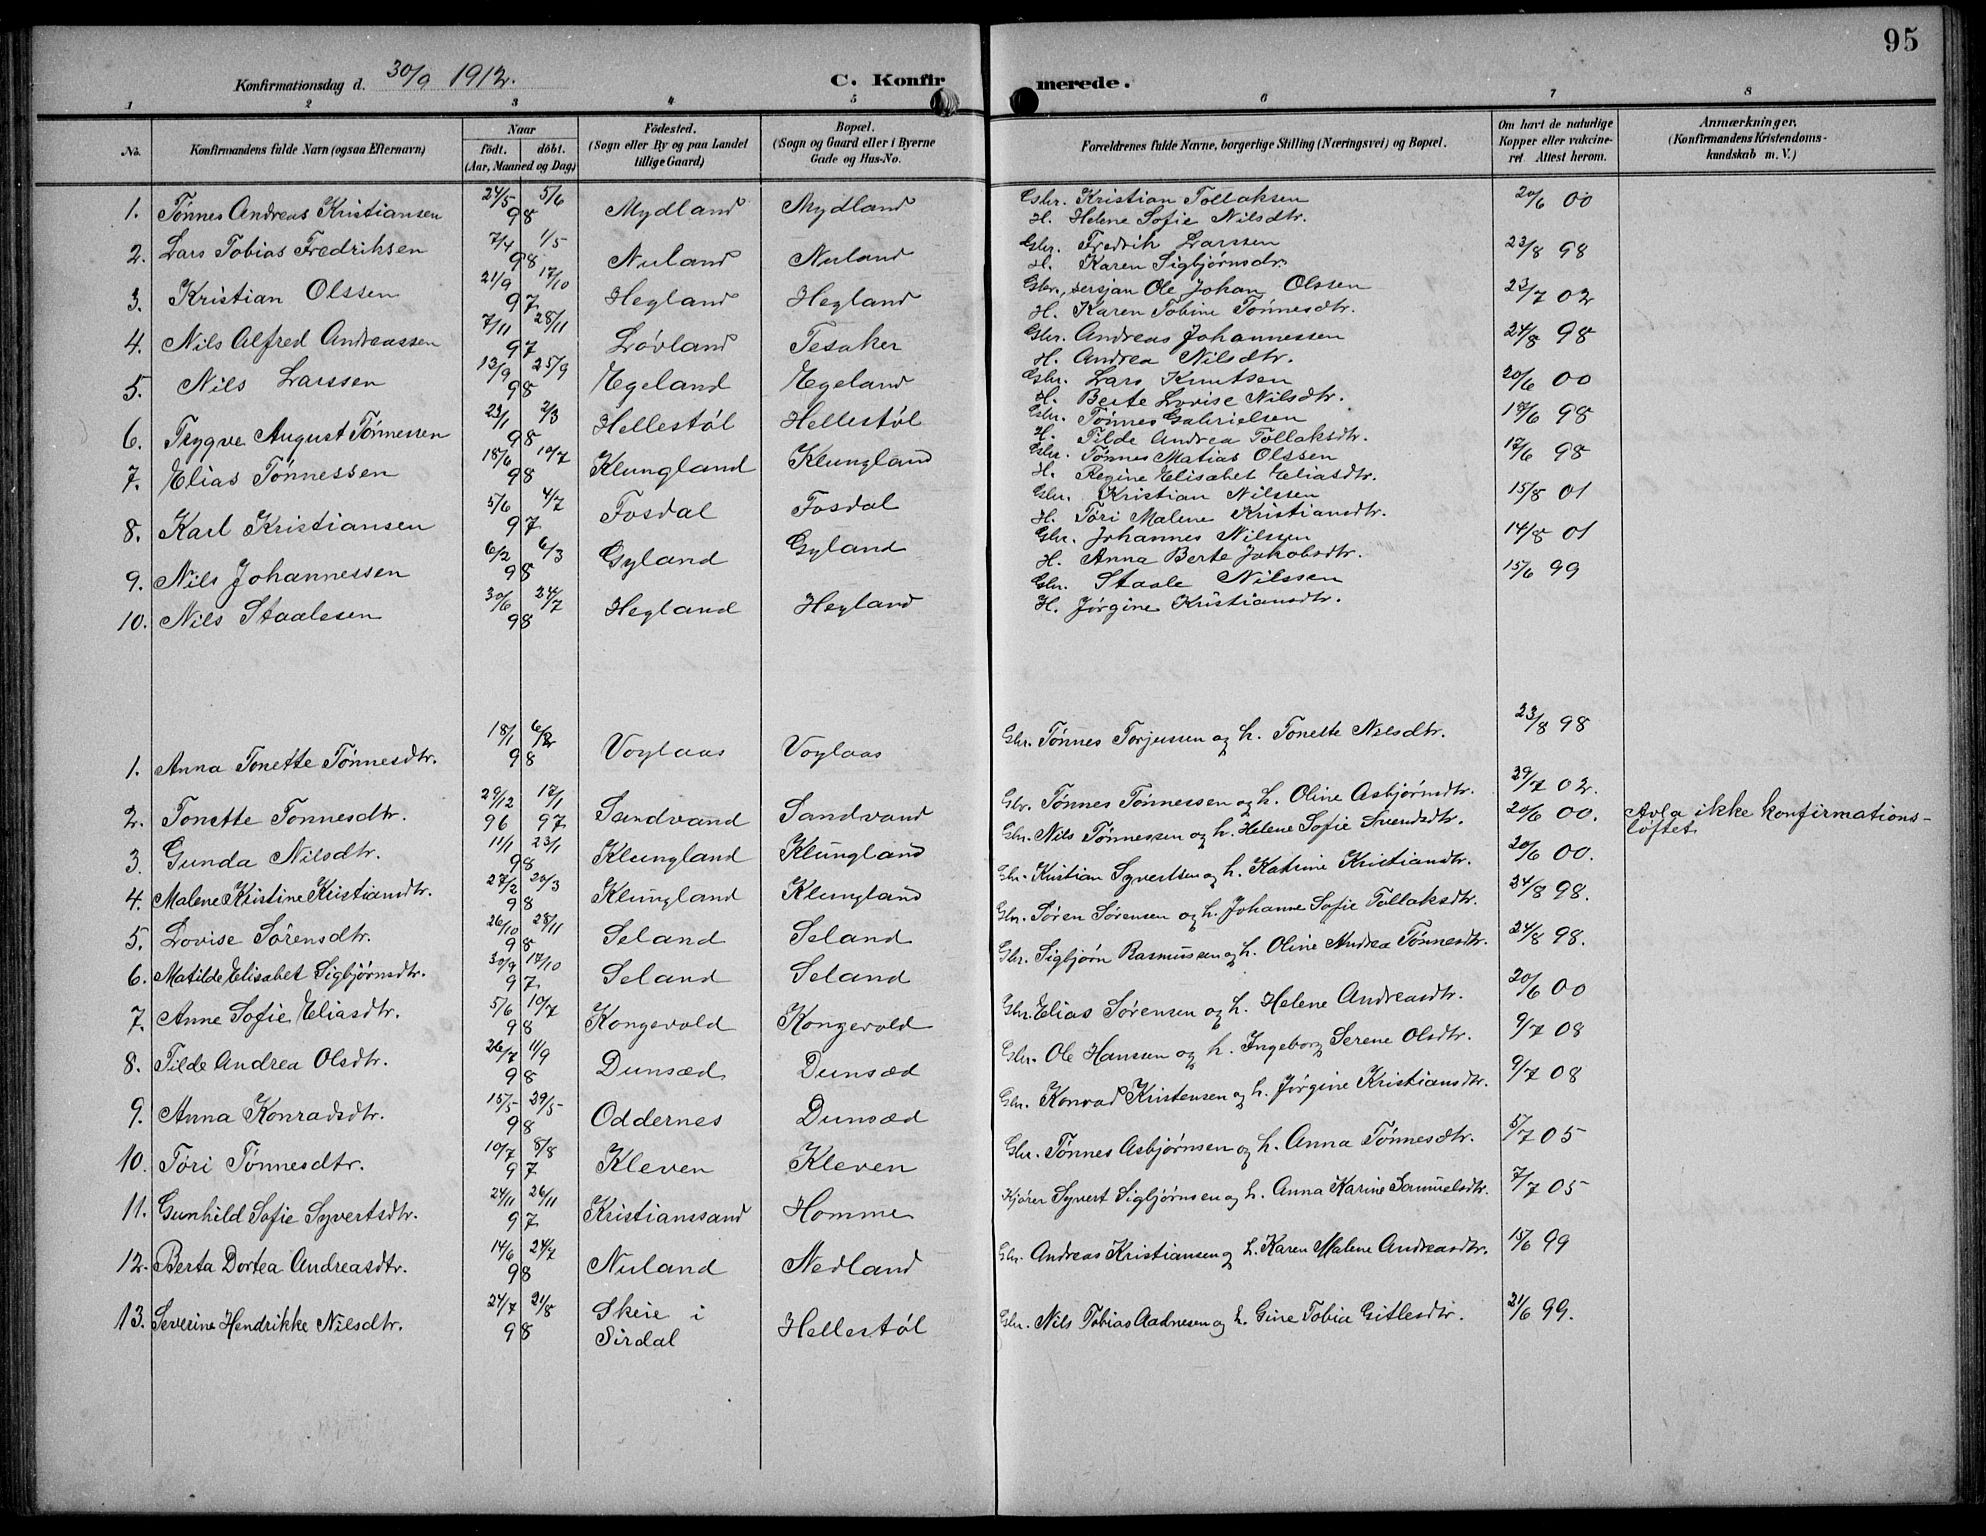 95
Konfirmationsdag d. 30/9 1912.
C. Konfirmerede.
1 2 3 4 5 6 7 8
No. Konfirmandens fulde Navn (ogsaa Efternavn) Naar født. døbt. (Aar, Maaned og Dag) Fødested. (Sogn eller By og paa Landet tillige Gaard) Bopæl. (Sogn og Gaard eller i Byerne Gade og Hus-No. Forældrenes fulde Navne, borgerlige Stilling (Næringsvei) og Bopæl. Om havt de naturlige Kopper eller vakcineret. Attest herom. Anmærkninger. (Konfirmandens Kristendomskundskab m. V.)
1. Tønnes Andreas Kristiansen 24/5 5/6 98 Mydland Mydland Gbr. Kristian Tollaksen 20/6 00
H. Helene Sofie Nilsdtr.
2. Lars Tobias Fredriksen 7/4 1/5 98 Nuland Nuland Gbr. Fredrik Larssen 23/8 98
H. Karen Sigbjørnsdr.
3. Kristian Olssen 21/9 17/10 97 Hegland Hegland Gbr., sersjan Ole Johan Olssen 23/7 02
H. Karen Tobine Tønnesdtr.
4. Nils Alfred Andreassen 7/11 28/11 97 Løvland Tesaker Gbr. Andreas Johannessen 24/8 98
H. Andrea Nilsdtr.
5. Nils Larssen 13/9 25/9 98 Egeland Egeland Gbr. Lars Knutsen 20/6 00
H. Berte Lovise Nilsdtr.
6. Trygve August Tønnessen 23/1 2/3 98 Hellestøl Hellestøl Gbr. Tønnes Gabrielsen 17/6 98
H. Tilde Andrea Tollaksdtr.
7. Elias Tønnessen 18/6 10/7 98 Klungland Klungland Gbr. Tønnes Matias Olssen 17/6 98
H. Regine Elisabet Eliasdtr.
8. Karl Kristiansen 5/6 4/7 97 Fosdal Fosdal Gbr. Kristian Nilssen 15/8 01
H. Tøri Malene Kristiansdtr.
9. Nils Johannessen 6/2 6/3 98 Gyland Gyland Gbr. Johannes Nilssen 14/8 01
H. Anna Berte Jakobsdtr.
10. Nils Staalesen 30/6 24/7 98 Hegland Hegland Gbr. Staale Nilssen 15/6 99
H. Jørgine Kristiansdtr.
1. Anna Tonette Tønnesdtr. 18/1 6/2 98 Voglaas Voglaas Gbr. Tønnes Torjussen og h. Tonette Nilsdtr. 23/8 98
2. Tonette Tønnesdtr. 29/12 96 17/1 97 Sandvand Sandvand Gbr. Tønnes Tønnessen og h. Oline Asbjørnsdtr. 29/7 02.
3. Gunda Nilsdtr. 11/1 23/1 98 Klungland Klungland Gbr. Nils Tønnessen og h. Helene Sofie Svendsdtr. 20/6 00. Avla ikke konfirmations-
løftet
4. Malene Kristine Kristiansdtr. 27/2 20/3 98 Klungland Klungland Gbr. Kristian Syvertsen og h. Katrine Kristiansdtr. 20/6 00.
5. Lovise Sørensdtr. 26/10 28/11 98 Seland Seland Gbr. Søren Sørensen og h. Johanne Sofie Tollaksdtr. 24/8 98.
6. Matilde Elisabet Sigbjørnsdtr. 30/9 17/10 97 Seland Seland Gbr. Sigbjørn Rasmussen og h. Oline Andrea Tønnesdtr. 24/8 98.
7. Anne Sofie Eliasdtr. 5/6 10/7 98 Kongevold Kongevold Gbr. Elias Sørensen og h. Helene Andreasdtr. 20/6 00
8. Tilde Andrea Olsdtr. 26/7 11/9 98 Dunsæd Dunsæd Gbr. Ole Hanssen og h. Ingeborg Serene Olsdtr. 9/7 08
9. Anna Konradsdtr. 15/5 29/5 98 Oddernes Dunsæd Gbr. Konrad Kristensen og h. Jørgine Kristiansdtr. 9/7 08
10. Tøri Tønnesdtr. 10/7 8/8 97 Kleven Kleven Gbr. Tønnes Asbjørnsen og h. Anna Tønnesdtr. 5/7 05
11. Gunhild Sofie Syvertsdtr. 24/11 26/11 97 Kristianssand Homme Kjører Syvert Sigbjørnsen og h. Anna Karine Samuelsdtr. 7/7 05
12. Berta Dortea Andreasdtr. 14/6 24/7 98 Nuland Nedland Gbr. Andreas Kristiansen og h. Karen Malene Andreasdtr. 15/6 99
13. Severine Hendrikke Nilsdtr. 24/7 21/8 98 Skeie i Sirdal Hellestøl Gbr. Nils Tobias Aadnesen og h. Gine Tobia Gitlesdtr. 21/6 99.